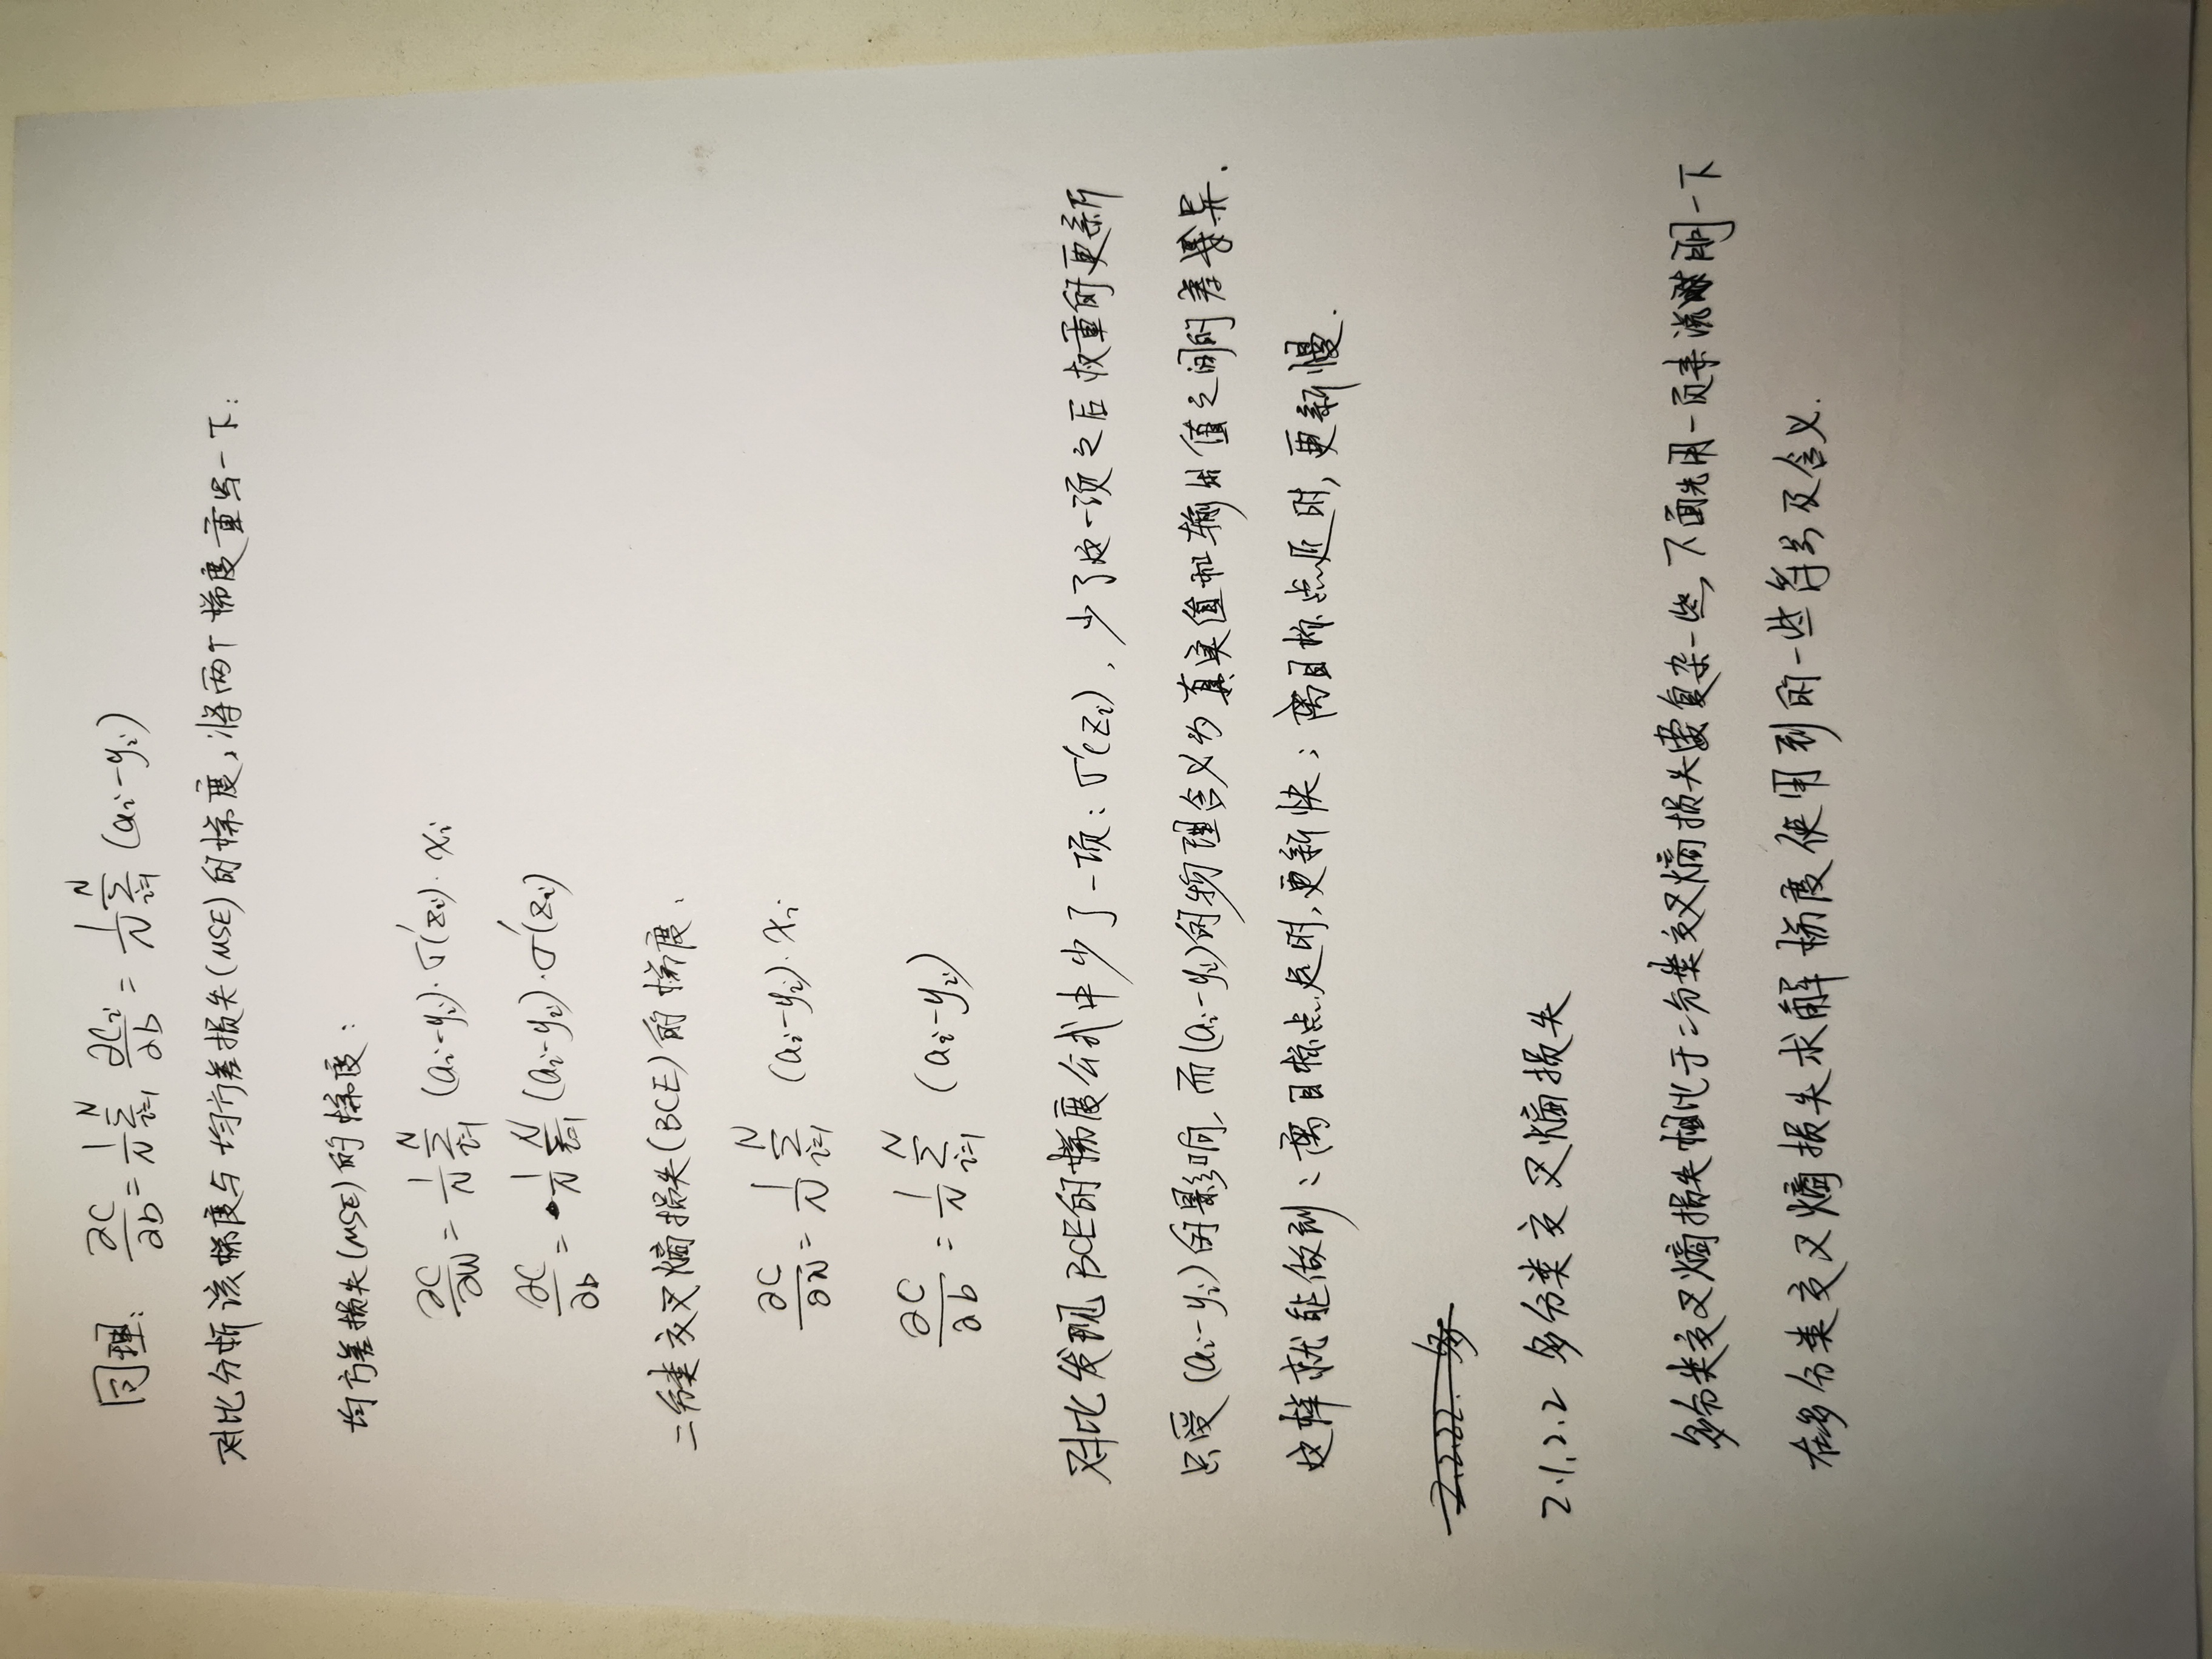 同理: ∂C/∂b = 1/N Σ_{i=1}^{N} ∂C_i/∂b = 1/N Σ_{i=1}^{N} (a_i - y_i)
对比分析该梯度与均方差损失(MSE)的梯度,将两个梯度重写一下:
均方差损失(MSE)的梯度:
∂C/∂W = 1/N Σ_{i=1}^{N} (a_i - y_i)·σ'(z_i)·x_i
∂C/∂b = 1/N Σ_{i=1}^{N} (a_i - y_i)·σ'(z_i)
二分类交叉熵损失(BCE)的梯度.
∂C/∂W = 1/N Σ_{i=1}^{N} (a_i - y_i)·x_i
∂C/∂b = 1/N Σ_{i=1}^{N} (a_i - y_i)
对比发现BCE的梯度公式中少了一项: σ'(z_i), 少了这一项之后权重的更新
只受(a_i - y_i)的影响,而(a_i - y_i)的物理含义为真实值和输出值之间的差异.
这样就能做到:离目标点远时,更新快;离目标点近时,更新慢.
2.1.2.2 多分类交叉熵损失
多分类交叉熵损失相比于二分类交叉熵损失要复杂一些,下面先用一页来说明一下
在多分类交叉熵损失求解梯度使用到的一些符号及含义.